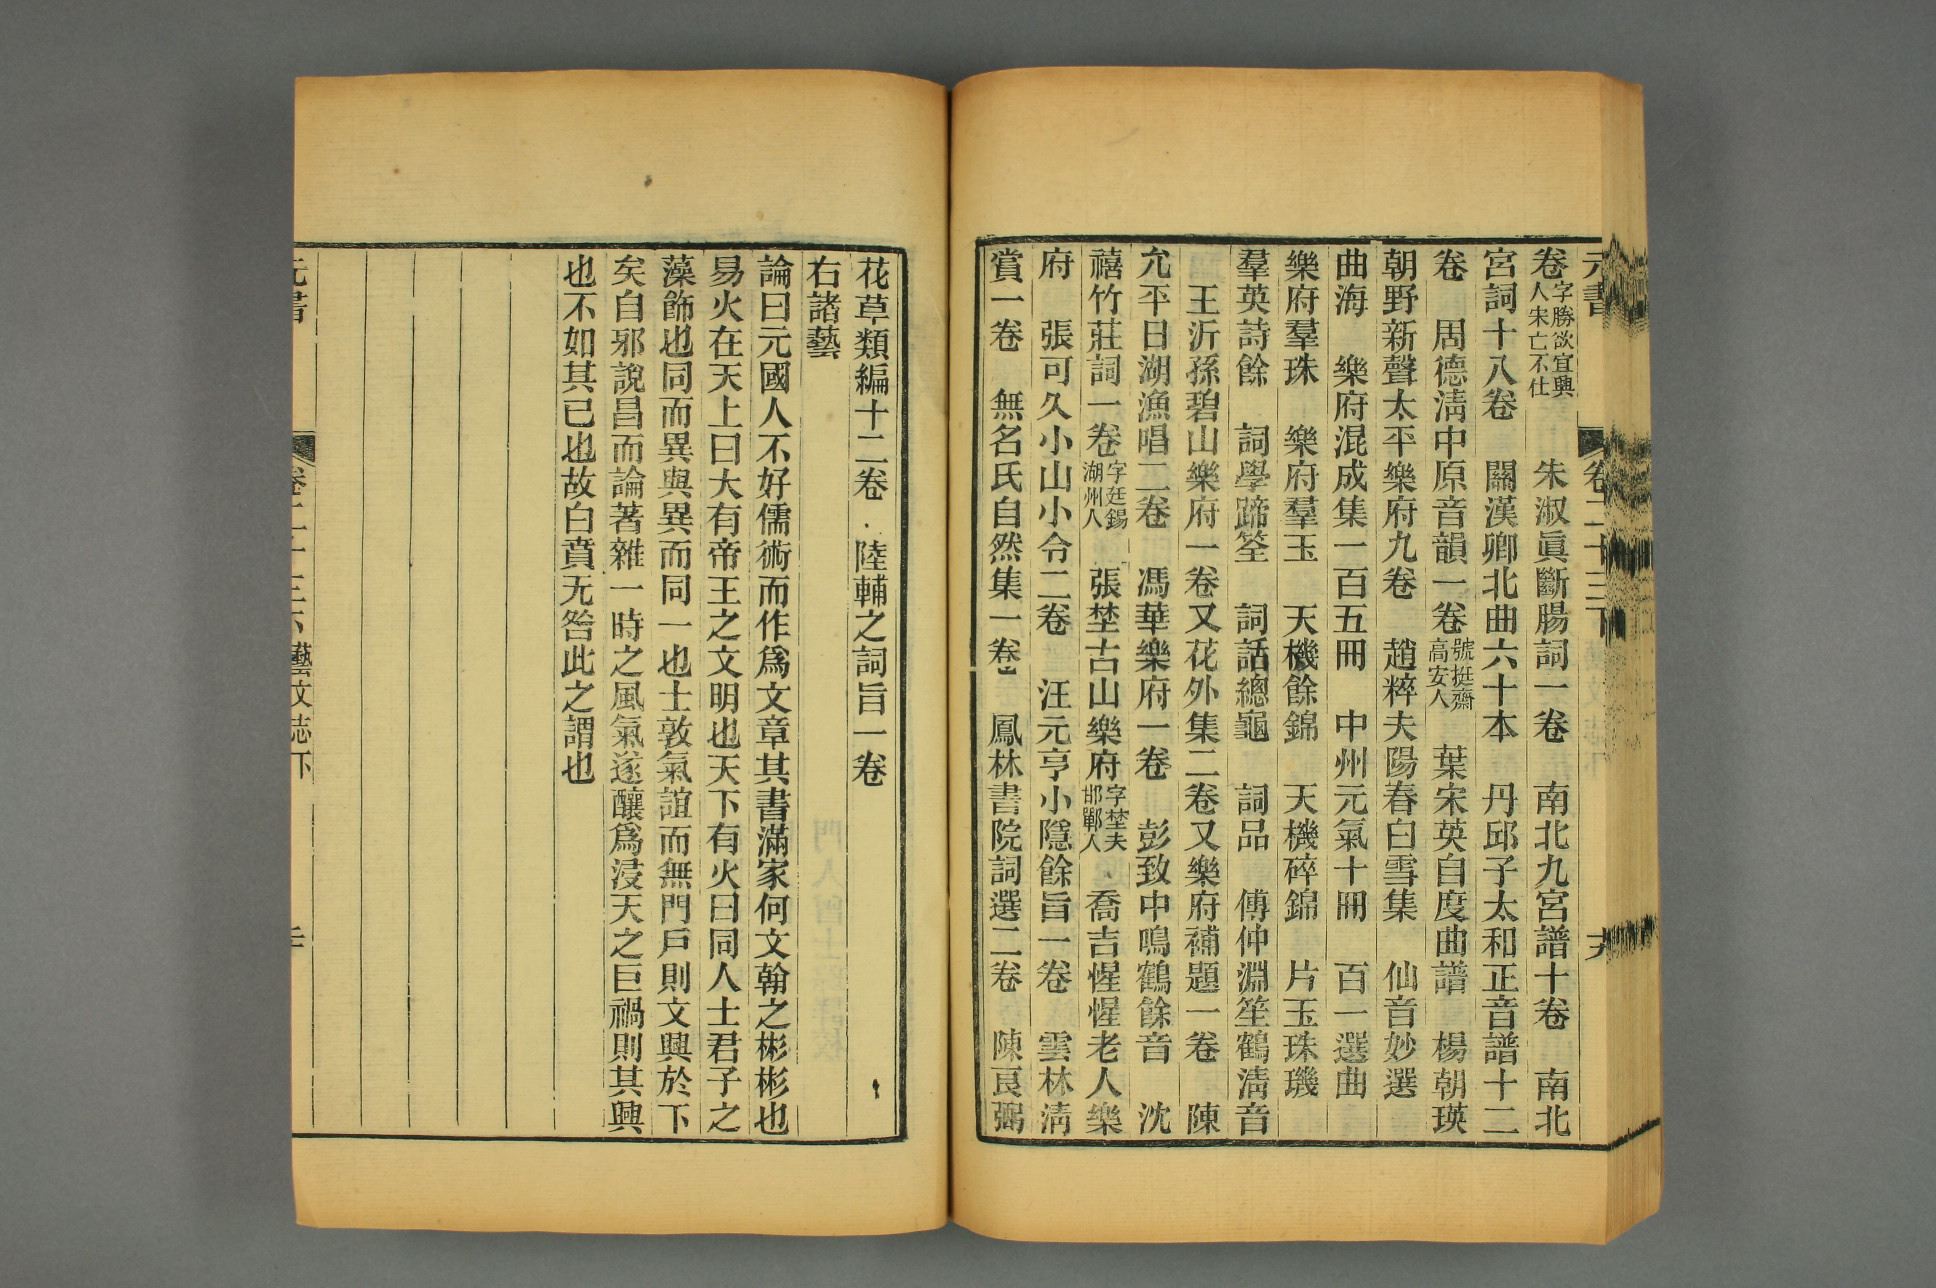 元書
卷二十三下
十九
卷字勝欲宜興人宋亡不仕　朱淑眞斷腸詞一卷　南北九宮譜十卷　南北
宮詞十八卷　關漢卿北曲六十本　丹邱子太和正音譜十二
卷　周德淸中原音韻一卷號挺齋高安人　葉宋英自度曲譜　楊朝瑛
朝野新聲太平樂府九卷　趙粹夫陽春白雪集　仙音妙選
曲海　樂府混成集一百五冊　中州元氣十冊　百一選曲
樂府羣珠　樂府羣玉　天機餘錦　天機碎錦　片玉珠璣
羣英詩餘　詞學蹄筌　詞話總龜　詞品　傅仲淵笙鶴淸音
王沂孫碧山樂府一卷又花外集二卷又樂府補題一卷　陳
允平日湖漁唱二卷　馮華樂府一卷　彭致中鳴鶴餘音　沈
禧竹莊詞一卷字廷錫湖州人　張埜古山樂府字埜夫邯鄲人　喬吉惺惺老人樂
府　張可久小山小令二卷　汪元亨小隱餘旨一卷　雲林淸
賞一卷　無名氏自然集一卷　鳳林書院詞選二卷　陳良弼
花草類編十二卷　陸輔之詞旨一卷
右諸藝
論曰元國人不好儒術而作爲文章其書滿家何文翰之彬彬也
易火在天上曰大有帝王之文明也天下有火曰同人士君子之
藻飾也同而異與異而同一也士敦氣誼而無門戶則文興於下
矣自邪說昌而論著雜一時之風氣遂釀爲浸天之巨禍則其興
也不如其已也故白賁无咎此之謂也
元書
卷二十三下藝文志下